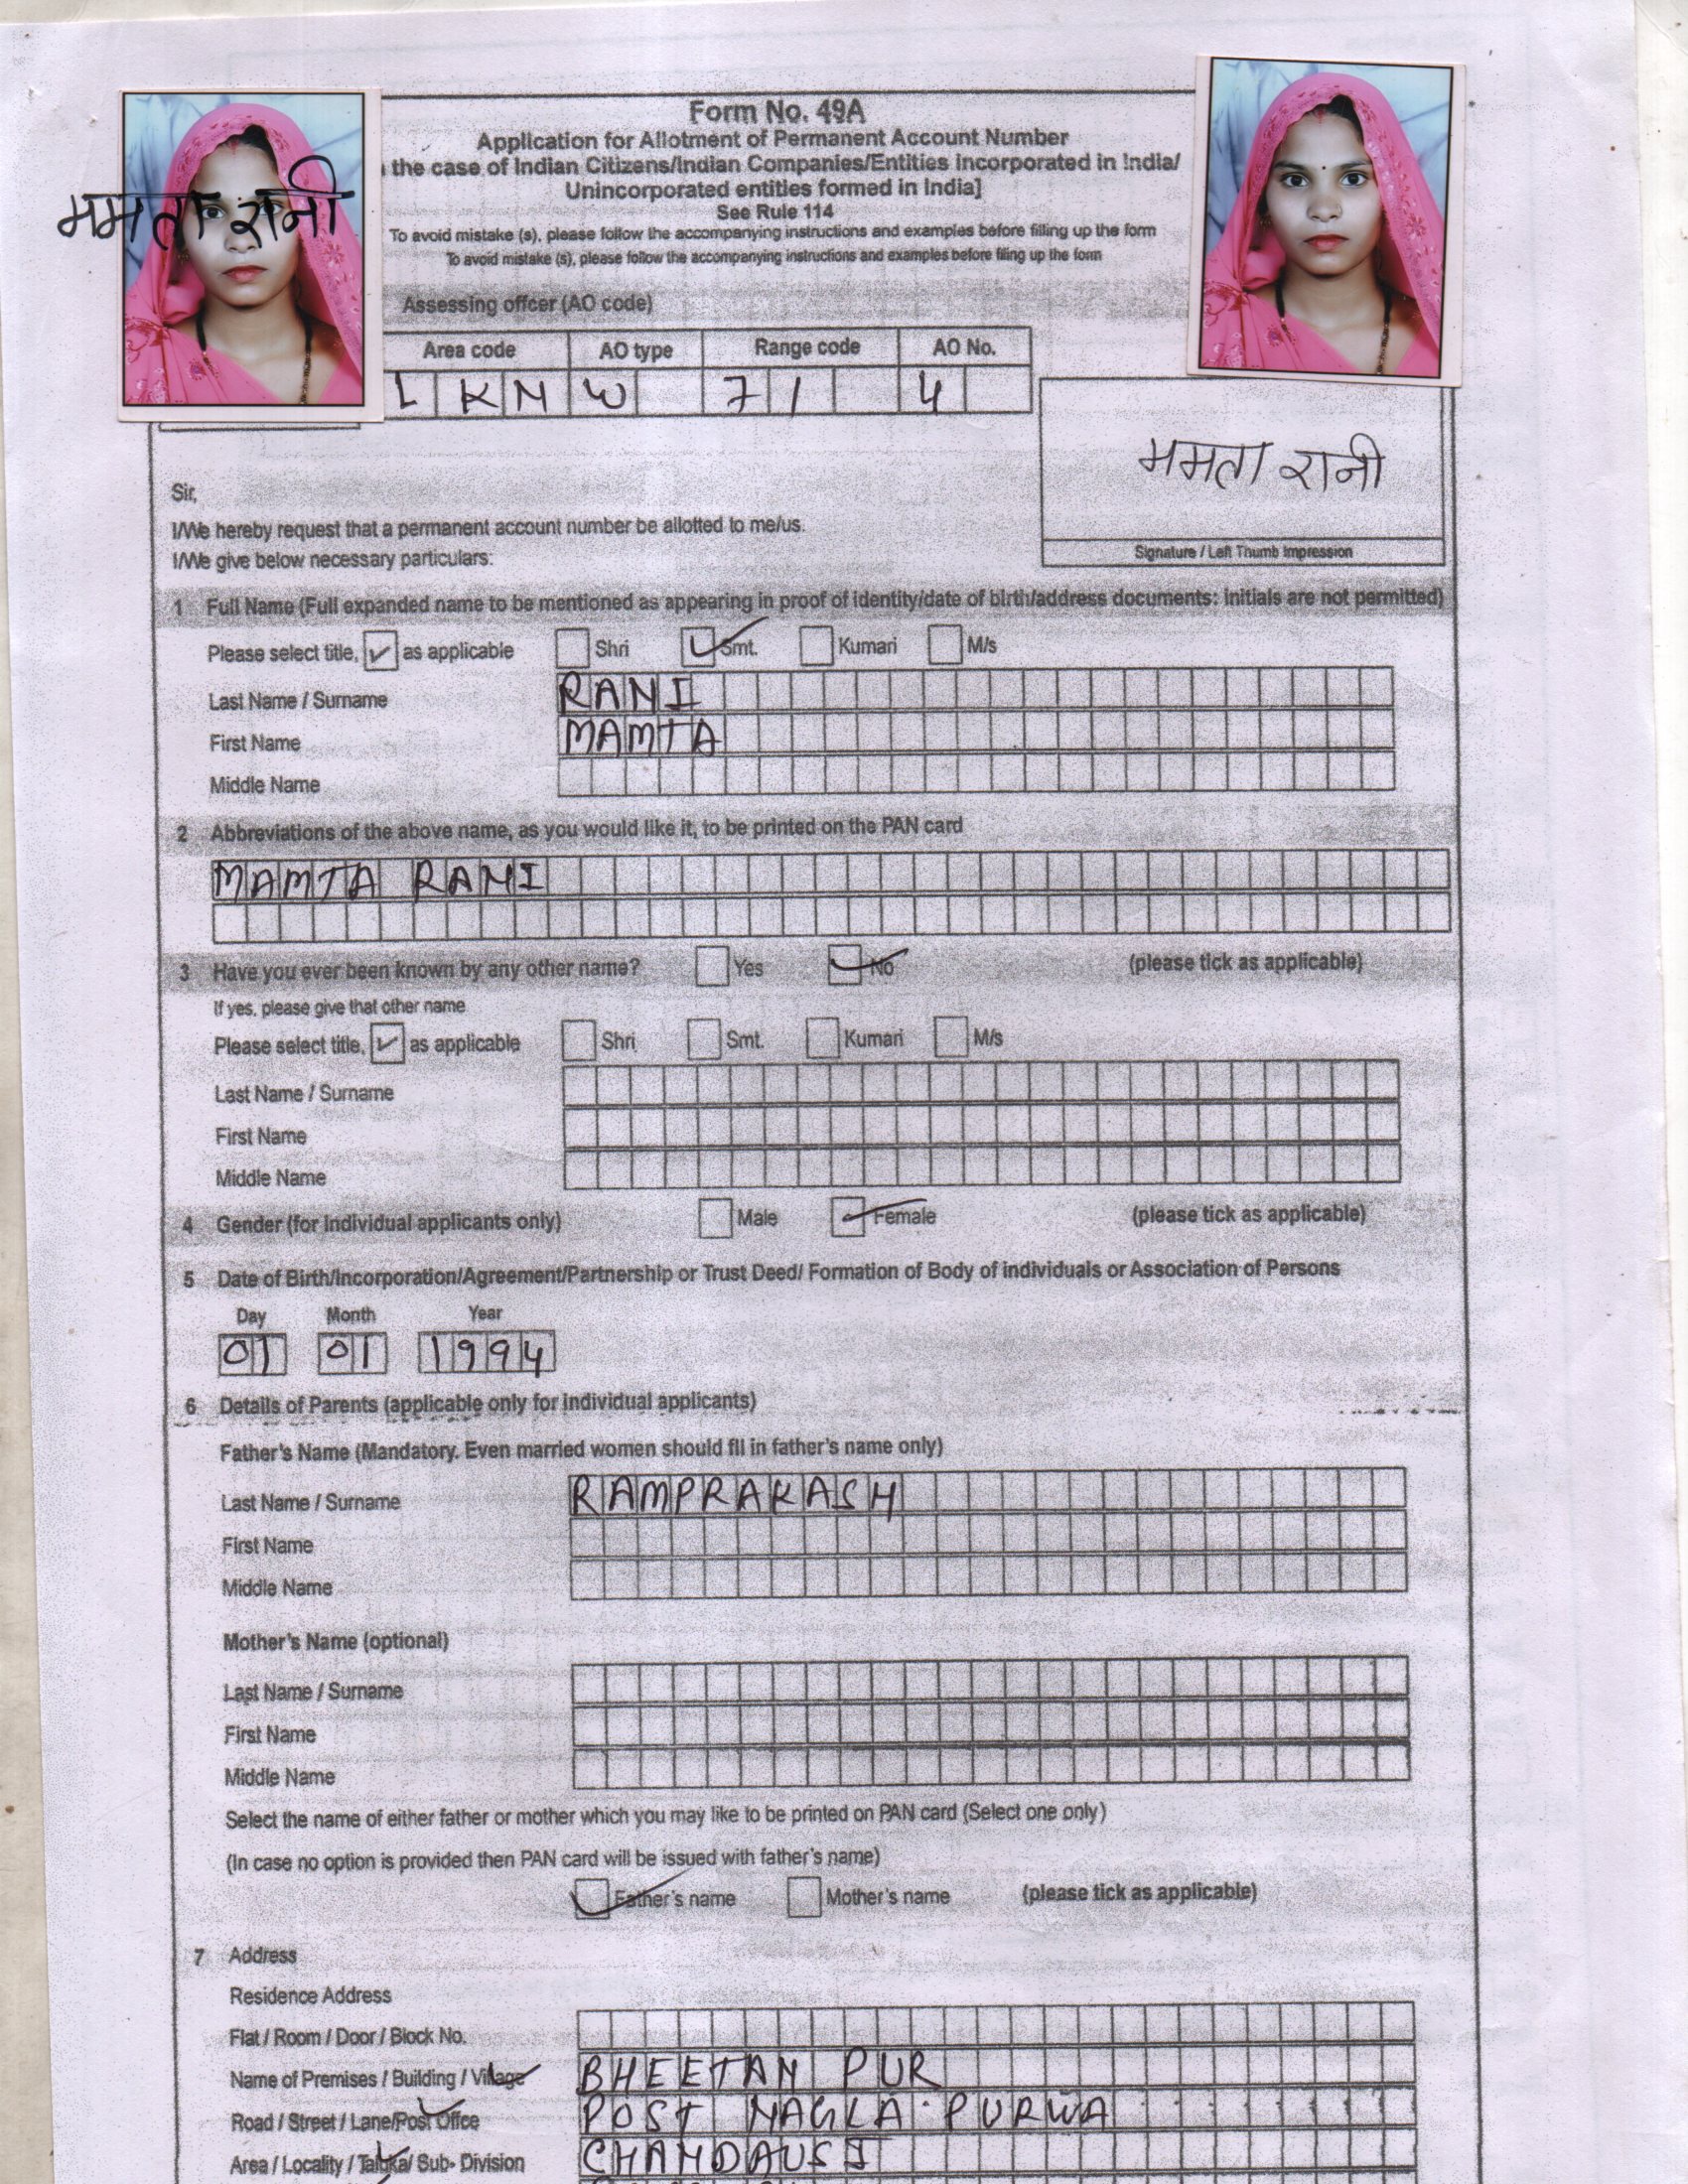 Form No. 49A
Application for Allotment of Permanent Account Number
the case of Indian Citizens/Indian Companies/Entities incorporated in India/
Unincorporated entities formed in India]
See Rule 114
To avoid mistake (s), please follow the accompanying instructions and examples before filling up the form
To avoid mistake (s), please follow the accompanying instructions and examples before filing up the form
ममता रानी
Assessing offcer (AO code)
Area code AO type Range code AO No.
L K N W 7 1 4
ममता रानी
Signature / Left Thumb Impression
Sir,
I/We hereby request that a permanent account number be allotted to me/us.
I/We give below necessary particulars:
1 Full Name (Full expanded name to be mentioned as appearing in proof of identity/date of birth/address documents: initials are not permitted)
Please select title, ✓ as applicable Shri Smt. Kumari M/s
Last Name / Surname RANI
First Name MAMTA
Middle Name
2 Abbreviations of the above name, as you would like it, to be printed on the PAN card
MAMTA RANI
3 Have you ever been known by any other name? Yes No (please tick as applicable)
If yes, please give that other name
Please select title, ✓ as applicable Shri Smt. Kumari M/s
Last Name / Surname
First Name
Middle Name
4 Gender (for individual applicants only) Male Female (please tick as applicable)
5 Date of Birth/Incorporation/Agreement/Partnership or Trust Deed/ Formation of Body of individuals or Association of Persons
Day Month Year
01 01 1994
6 Details of Parents (applicable only for individual applicants)
Father's Name (Mandatory. Even married women should fll in father's name only)
Last Name / Surname RAMPRAKASH
First Name
Middle Name
Mother's Name (optional)
Last Name / Surname
First Name
Middle Name
Select the name of either father or mother which you may like to be printed on PAN card (Select one only)
(In case no option is provided then PAN card will be issued with father's name)
Father's name Mother's name (please tick as applicable)
7 Address
Residence Address
Flat / Room / Door / Block No.
Name of Premises / Building / Village BHEETAN PUR
Road / Street / Lane/Post Offce POST NAGLA PURWA
Area / Locality / Taluka/ Sub- Division CHANDAUSI